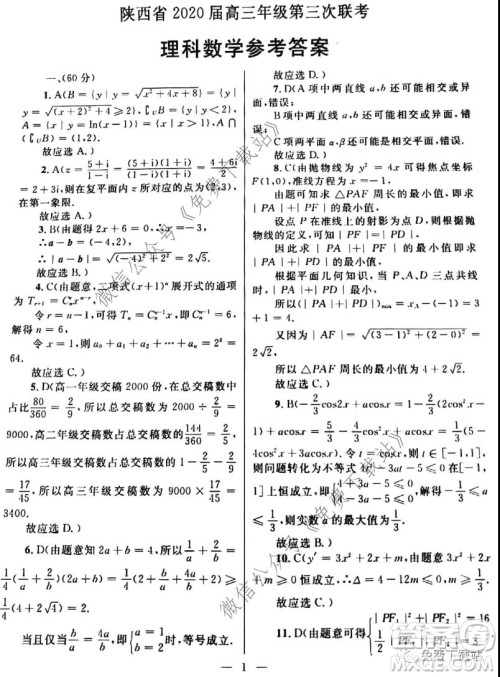 陕西省 2020 届高三年级第三次联考
理科数学参考答案
一、(60 分)
1. A(B={y|y=√(x²+4x+8)}={y|
y=√((x+2)²+4)≥2}, ∁ᵤB={y|y<2},
A={x|y=ln(x-1)}={x|x>1}, ∴A∩
(∁ᵤB)=(1,2).
故应选 A.)
2. A(z=(5+i)/(1-i)=(5+i)(1+i)/((1-i)(1+i))=(4+6i)/2
=2+3i,则在复平面内 z 对应的点为(2,3),
在第一象限.
故应选 A.)
3. B(由题意 2x+6=0, ∴x=-3.
∴a-b=(-4,2),
∴|a-b|=√((-4)²+2²)=2√5.
故应选 B.)
4. C(由题意,二项式(x+1)ⁿ展开式的通项
令 r=n-1,可得 Cₙⁿ⁻¹=6,
解得 n=6,
令 x=1,则 a₀+a₁+a₂+…+aₙ=2⁶=
64.
故应选 C.)
5. D(高一年级交稿 2000 份,在总交稿数中
占比80/360=2/9,所以总交稿数为 2000÷2/9=
9000,高二年级交稿数占总交稿数的144/360=
2/5,所以高三年级交稿数占总交稿数的 1-2/5-
2/9=17/45,所以高三年级交稿数为 9000×17/45=
3400.
故应选 D.)
6. D(由题意知 2a+b=4,
1/4(4+2√4)=2.
当且仅当 b/a=4a/b,即{a=1 b=2时,等号成立.
故应选 D.)
7. D(A 项中两直线 a,b 还可能相交或异面,
错误;
B 项中两直线 a,b 还可能相交或异面,
错误;
C 项两平面 α,β 还可能是相交平面,错误;
故应选 D.)
8. C(由抛物线为 y²=4x 可得焦点坐标
F(1,0),准线方程为 x=-1.
由题可知求△PAF 周长的最小值,即求
|PA|+|PF|的最小值.
设点 P 在准线上的射影为点 D,则根据抛
物线的定义,可知|PF|=|PD|.
因此求|PA|+|PF|的最小值即求
|PA|+|PD|的最小值.
根据平面几何知识,当 P、A、D 三点共线
时,|PA|+|PD|最小.
所以(|PA|+|PD|)min=x_A-(-1)=
4.
又因为|AF|=√((3-1)²+(2-0)²)=2√2,
所以△PAF 周长的最小值为 4+2√2.
故应选 C.)
9. B(-1/2cos2x+acosx=1-2/3(2cos²x-
令 cosx=t,则 t∈[-1,
则问题转化为不等式 4t²-3at-5≤0 在 t∈[-
1]上恒成立,即
1/3,所以实数 a 的最大值为1/3.
故应选 B.)
∴m≥1/3.
故应选 C.)
11. D(由题意可得{|PF₁|+|PF₂|=16
微信公众号《免费下载站》
微信公众号《免费下载站》
— 1 —